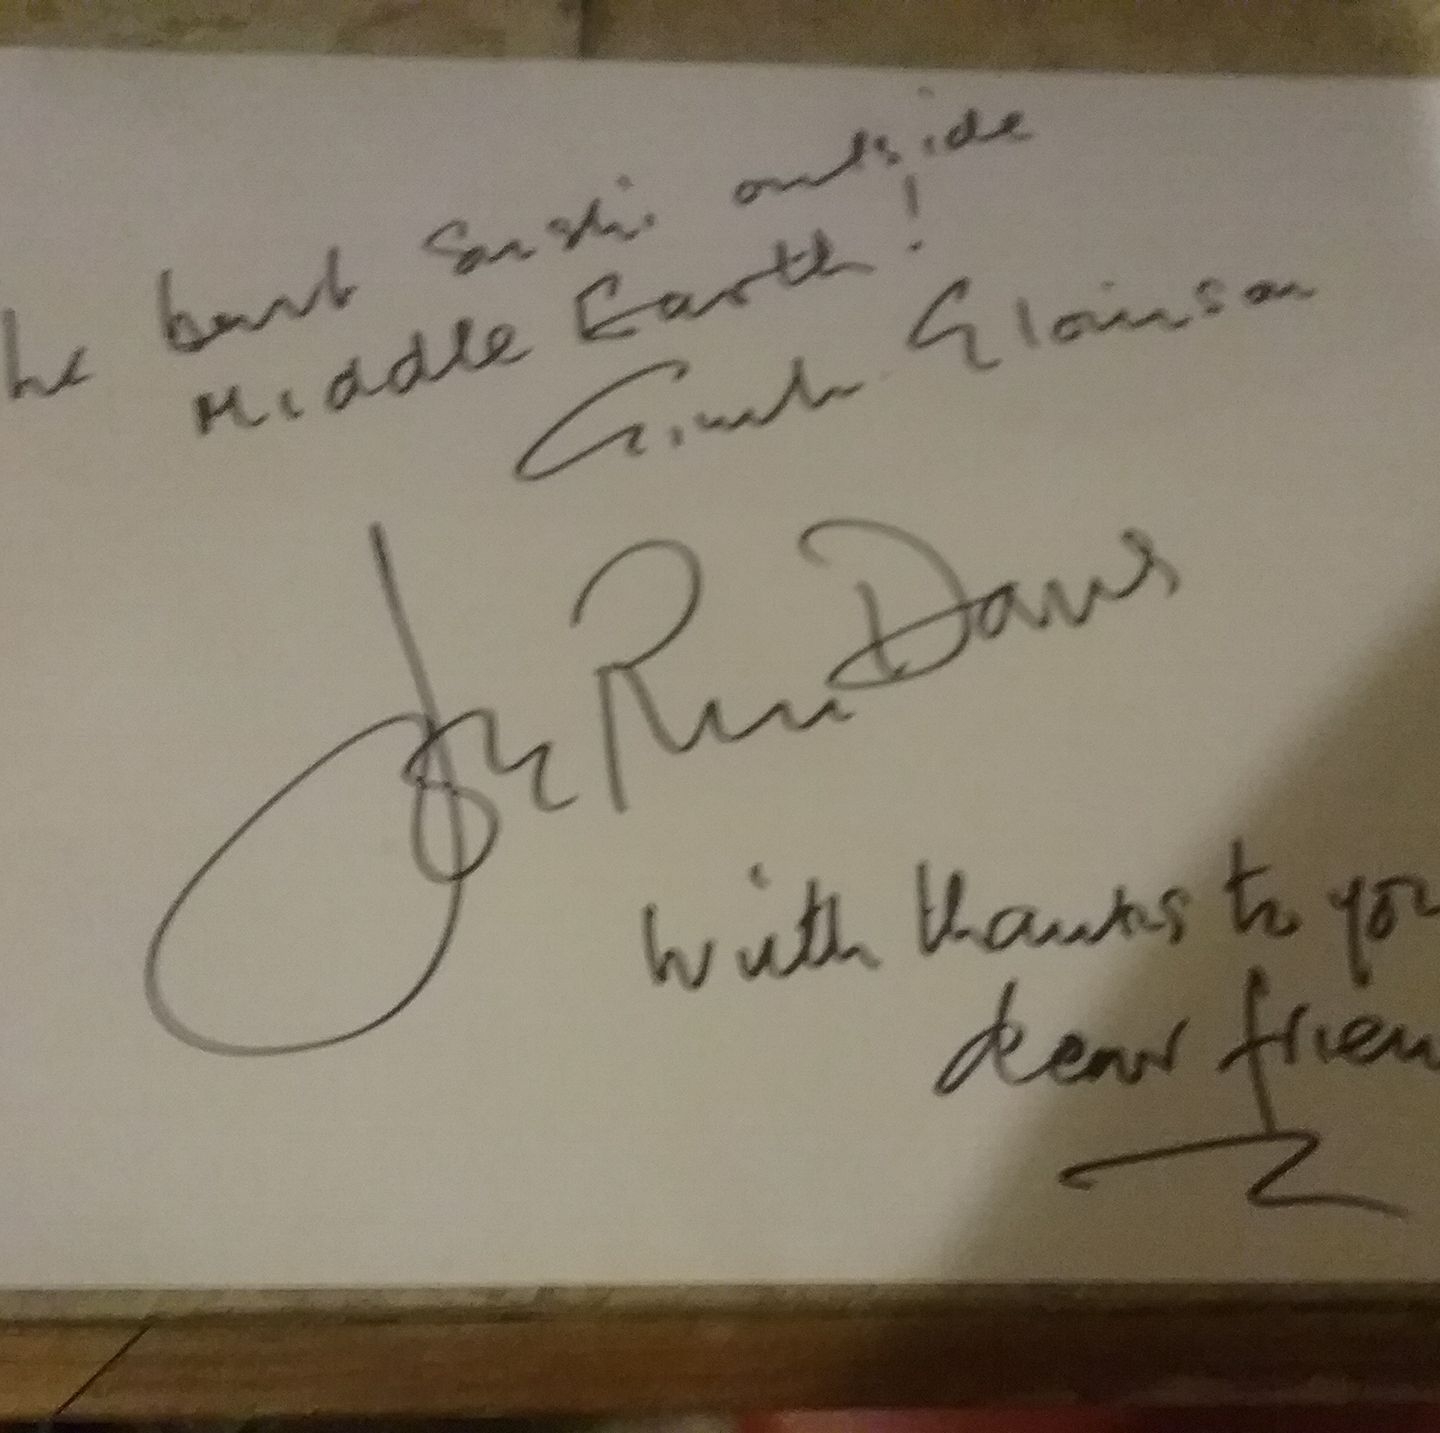 he best Sushi outside
Middle Earth!
Gimli Gloinson
John Rhys Davies
With thanks to you
dear frien